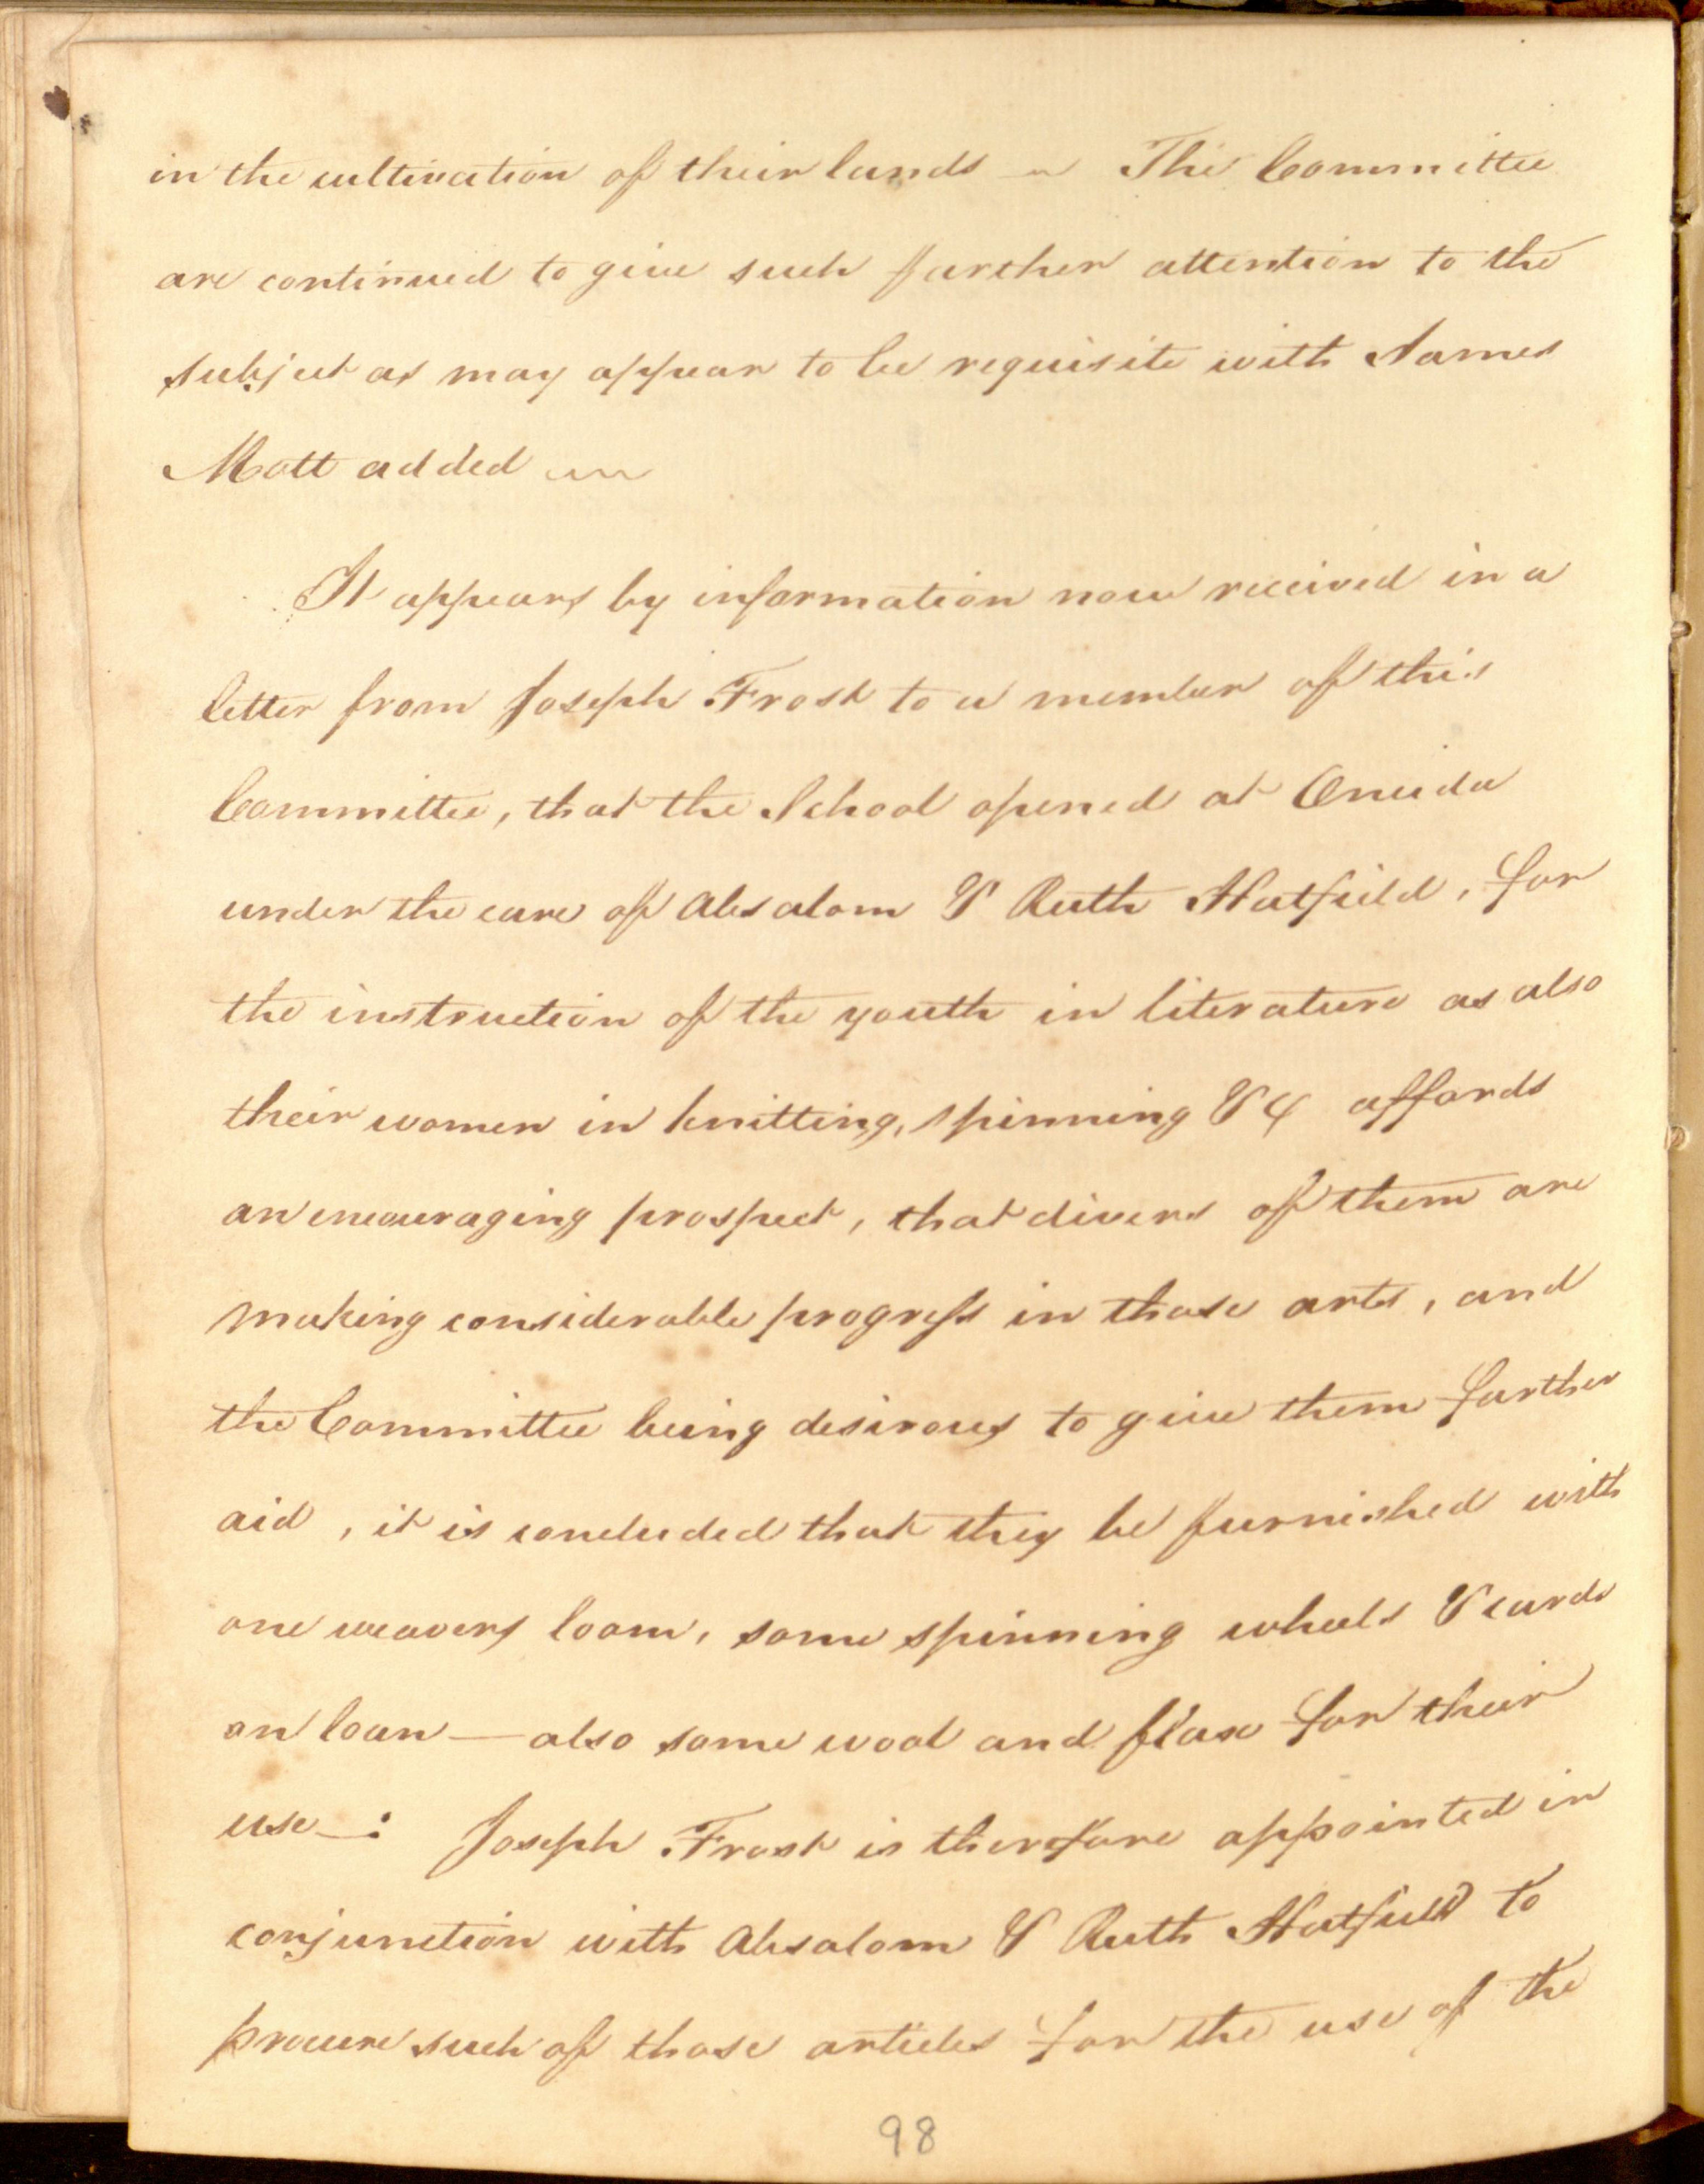 in the cultivation of their lands ~ The Committee
are continued to give such further attention to the
subject as may appear to be requisite with James
Mott added ~
It appears by information now received in a
letter from Joseph Frost to a member of this
Committee, that the School opened at Oneida
under the care of Absalom & Ruth Hatfield, for
the instruction of the youth in literature as also
their women in knitting, spinning &c affords
an encouraging prospect, that divers of them are
making considerable progress in those arts, and
the Committee being desirous to give them further
aid, it is concluded that they be furnished with
one weavers loom, some spinning wheels & cards
on loan — also some wool and flax for their
use —: Joseph Frost is therefore appointed in
conjunction with Absalom & Ruth Hatfield to
procure such of those articles for the use of the
98